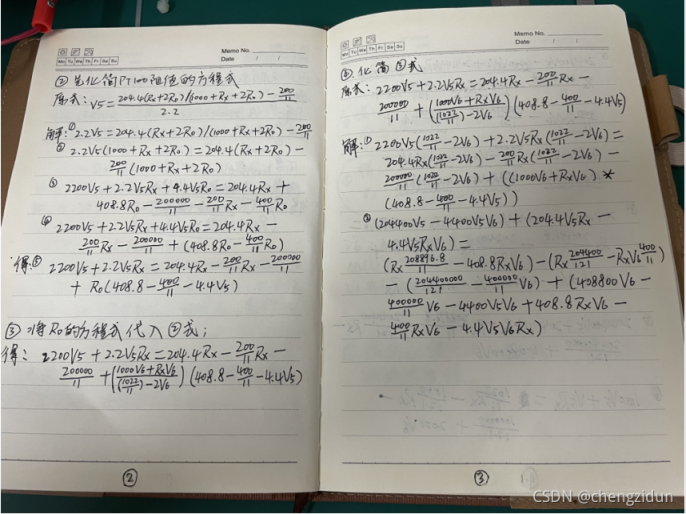 Memo No.
Mo Tu We Th Fr Sa Su
Date / /
② 先化简PT100阻值的方程式
原式: V5 = 204.4(Rx+2R0)/(1000+Rx+2R0) - 200/11
2.2
解: ① 2.2V5 = 204.4(Rx+2R0)/(1000+Rx+2R0) - 200/11
② 2.2V5(1000+Rx+2R0) = 204.4(Rx+2R0) -
200/11 (1000+Rx+2R0)
③ 2200V5+2.2V5Rx+4.4V5R0 = 204.4Rx +
408.8R0 - 200000/11 - 200/11 Rx - 400/11 R0
④ 2200V5+2.2V5Rx+4.4V5R0 = 204.4Rx -
200/11 Rx - 200000/11 + (408.8R0 - 400/11 R0)
得: ⑤ 2200V5+2.2V5Rx = 204.4Rx - 200/11 Rx - 200000/11
+ R0(408.8 - 400/11 - 4.4V5)
③ 将R0的方程式代入②式;
得: 2200V5+2.2V5Rx = 204.4Rx - 200/11 Rx -
200000/11 + ((1000V6+RxV6)/((1022/11)-2V6)) (408.8 - 400/11 - 4.4V5)
②
Memo No.
Mo Tu We Th Fr Sa Su
Date / /
化简③式
原式: 2200V5+2.2V5Rx = 204.4Rx - 200/11 Rx -
200000/11 + ((1000V6+RxV6)/((1022/11)-2V6)) (408.8 - 400/11 - 4.4V5)
解: ① 2200V5(1022/11 - 2V6) + 2.2V5Rx(1022/11 - 2V6) =
204.4Rx(1022/11 - 2V6) - 200/11 Rx(1022/11 - 2V6) -
200000/11 (1022/11 - 2V6) + ((1000V6+RxV6) *
(408.8 - 400/11 - 4.4V5))
② (204400V5 - 4400V5V6) + (204.4V5Rx -
4.4V5RxV6) =
(Rx 208896.8/11 - 408.8RxV6) - (Rx 204400/121 - RxV6 400/11)
- (204400000/121 - 400000/11 V6) + (408800V6 -
400000/11 V6 - 4400V5V6 + 408.8RxV6 -
400/11 RxV6 - 4.4V5V6Rx)
③
CSDN @chengzidun